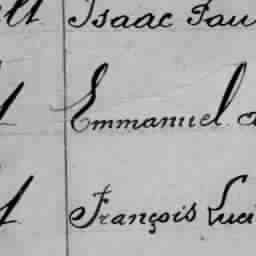 Isaac Pau
Emmanuel
François Luci